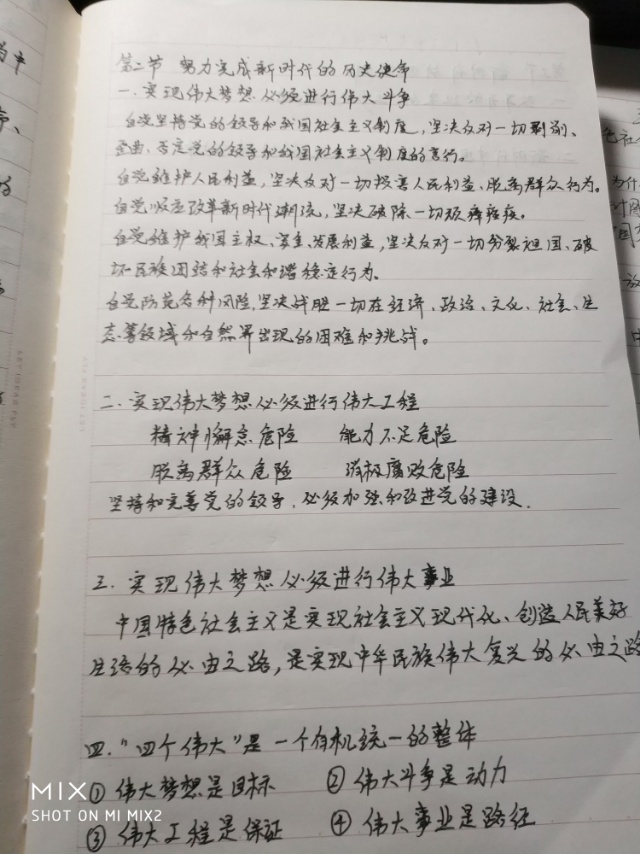 第二节 努力完成新时代的历史使命
一.实现伟大梦想 必须进行伟大斗争
自觉坚持党的领导和我国社会主义制度,坚决反对一切削弱、
歪曲、否定党的领导和我国社会主义制度的言行。
自觉维护人民利益,坚决反对一切损害人民利益、脱离群众行为。
自觉顺应改革新时代潮流,坚决破除一切顽瘴痼疾。
自觉维护我国主权、安全、发展利益,坚决反对一切分裂祖国、破
坏民族团结和社会和谐稳定行为。
自觉防范各种风险,坚决战胜一切在经济、政治、文化、社会、生
态等领域和自然界出现的困难和挑战。
二.实现伟大梦想必须进行伟大工程
精神懈怠危险 能力不足危险
脱离群众危险 消极腐败危险
坚持和完善党的领导.必须加强和改进党的建设.
三.实现伟大梦想必须进行伟大事业
中国特色社会主义是实现社会主义现代化、创造人民美好
生活的必由之路,是实现中华民族伟大复兴的必由之路
四."四个伟大"是一个有机统一的整体
①伟大梦想是目标 ②伟大斗争是动力
③伟大工程是保证 ④伟大事业是路径
色社
为什
MIX
SHOT ON MI MIX2